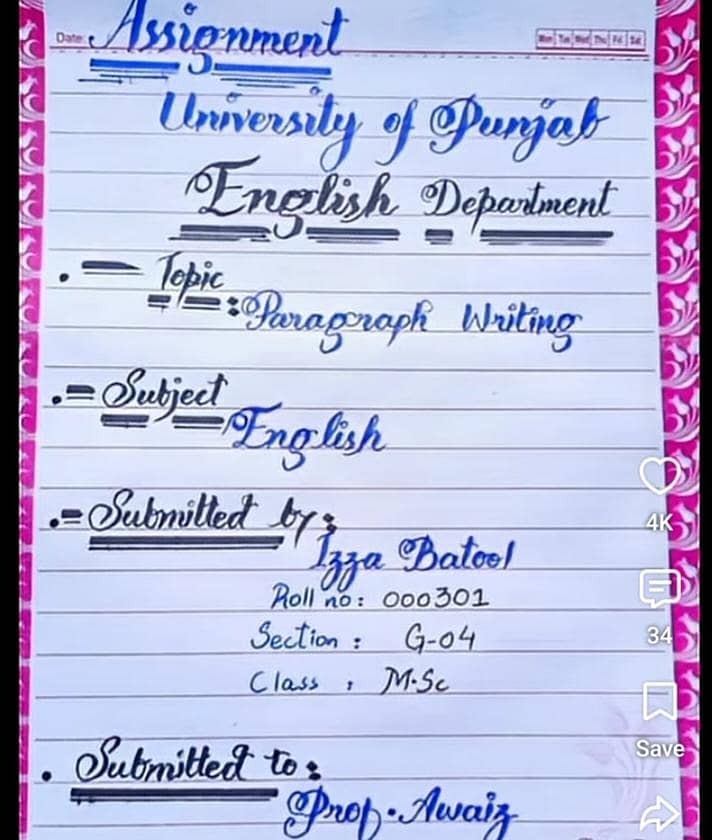 Date:
Assignment
Mon Tue Wed Thu Fri Sat
University of Punjab
English Department
Topic
:Paragraph Writing
Subject
English
Submitted by:
Izza Batool
Roll no: 000301
Section : G-04
Class : M.Sc
Submitted to:
Prof. Awaiz
4K
34
Save